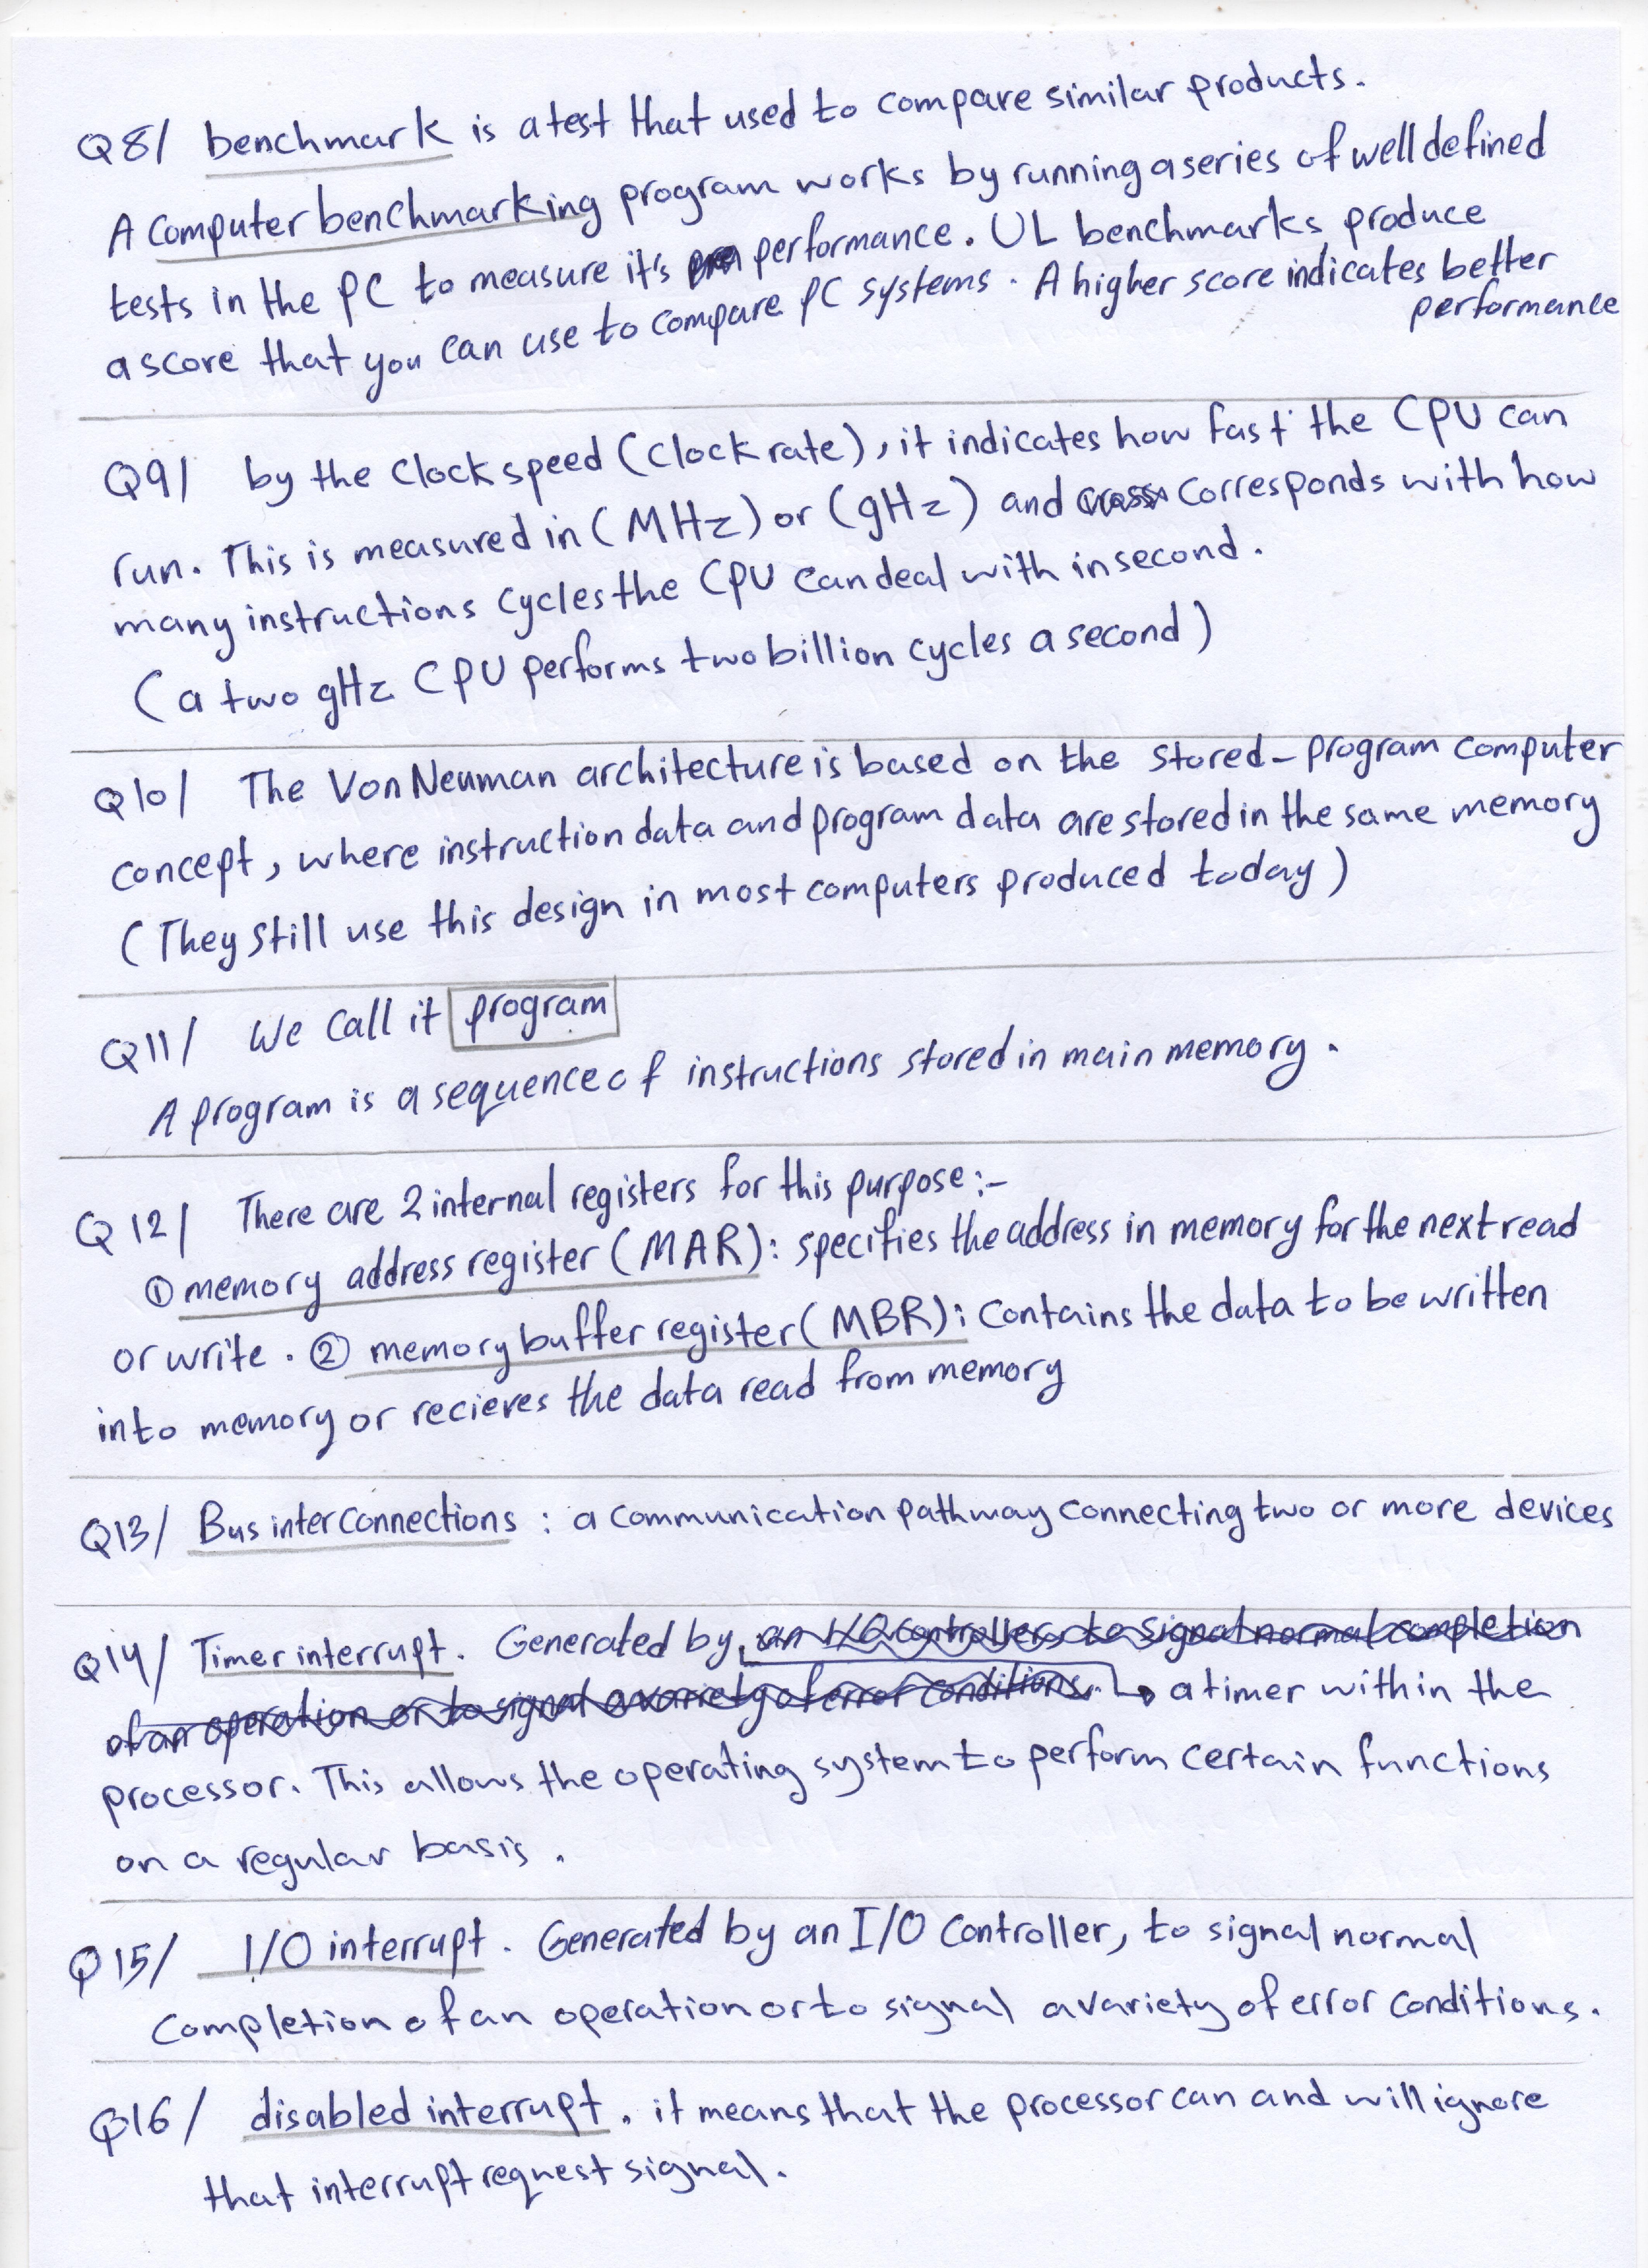 Q8/ benchmark is a test that used to compare similar products.
A computer benchmarking program works by running a series of well defined
tests in the PC to measure it's performance. UL benchmarks produce
a score that you can use to compare PC systems. A higher score indicates better
performance
Q9/ by the Clock speed (Clock rate), it indicates how fast the CPU can
run. This is measured in (MHz) or (gHz) and corresponds with how
many instructions cycles the CPU can deal with in second.
(a two gHz CPU performs two billion cycles a second)
Q10/ The Von Neuman architecture is based on the stored-program computer
concept, where instruction data and program data are stored in the same memory
(They still use this design in most computers produced today)
Q11/ We call it program
A program is a sequence of instructions stored in main memory.
Q12/ There are 2 internal registers for this purpose:-
① memory address register (MAR): specifies the address in memory for the next read
or write. ② memory buffer register (MBR): Contains the data to be written
into memory or recieves the data read from memory
Q13/ Bus interconnections : a communication pathway connecting two or more devices
Q14/ Timer interrupt. Generated by an I/O controller, to signal normal completion
of an operation or to signal a variety of error conditions. a timer within the
processor. This allows the operating system to perform certain functions
on a regular basis.
Q15/ I/O interrupt. Generated by an I/O Controller, to signal normal
Completion of an operation or to signal a variety of error conditions.
Q16/ disabled interrupt. it means that the processor can and will ignore
that interrupt request signal.